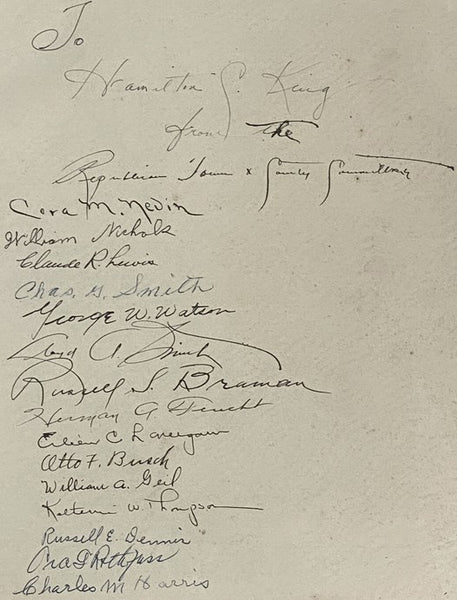 To
Hamilton S. King
from the
Republican Town & County Committeemen
Cora M. Nevin
William Nichols
Claude R. Lewis
Chas. G. Smith
George W. Watson
Lloyd A.
Russell S. Braman
Herman A. Feucht
Eileen C.
Otto F. Busch
William A. Geil
Katherine W. Thompson
Russell E. Dennis
Ora F. Rothfuss
Charles M Harris